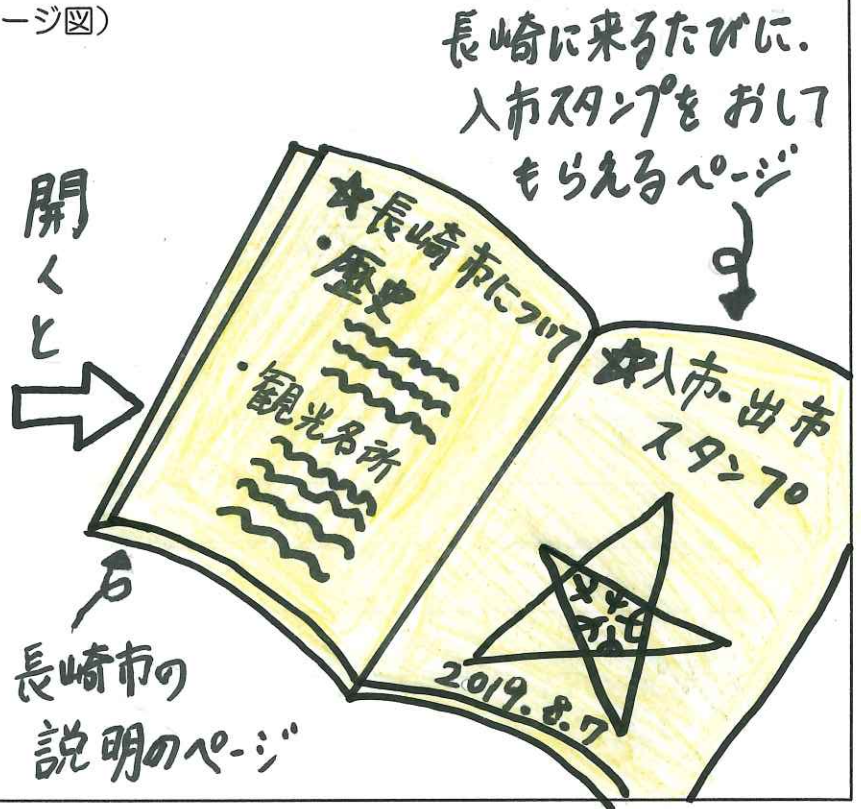 ージ図)
長崎に来るたびに、
入市スタンプを おして
もらえるページ
開くと
☆長崎市について
・歴史
・観光名所
☆入市・出市
スタンプ
2019.8.7
長崎市の
説明のページ